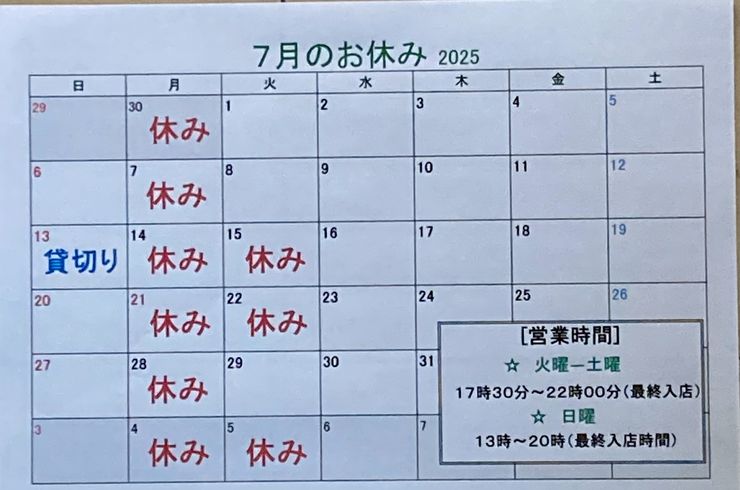 7月のお休み 2025
日 月 火 水 木 金 土
29 30 1 2 3 4 5
休み
6 7 8 9 10 11 12
休み
13 14 15 16 17 18 19
貸切り 休み 休み
20 21 22 23 24 25 26
休み 休み
27 28 29 30 31
休み
3 4 5 6 7
休み 休み
[営業時間]
☆ 火曜―土曜
17時30分～22時00分(最終入店)
☆ 日曜
13時～20時(最終入店時間)